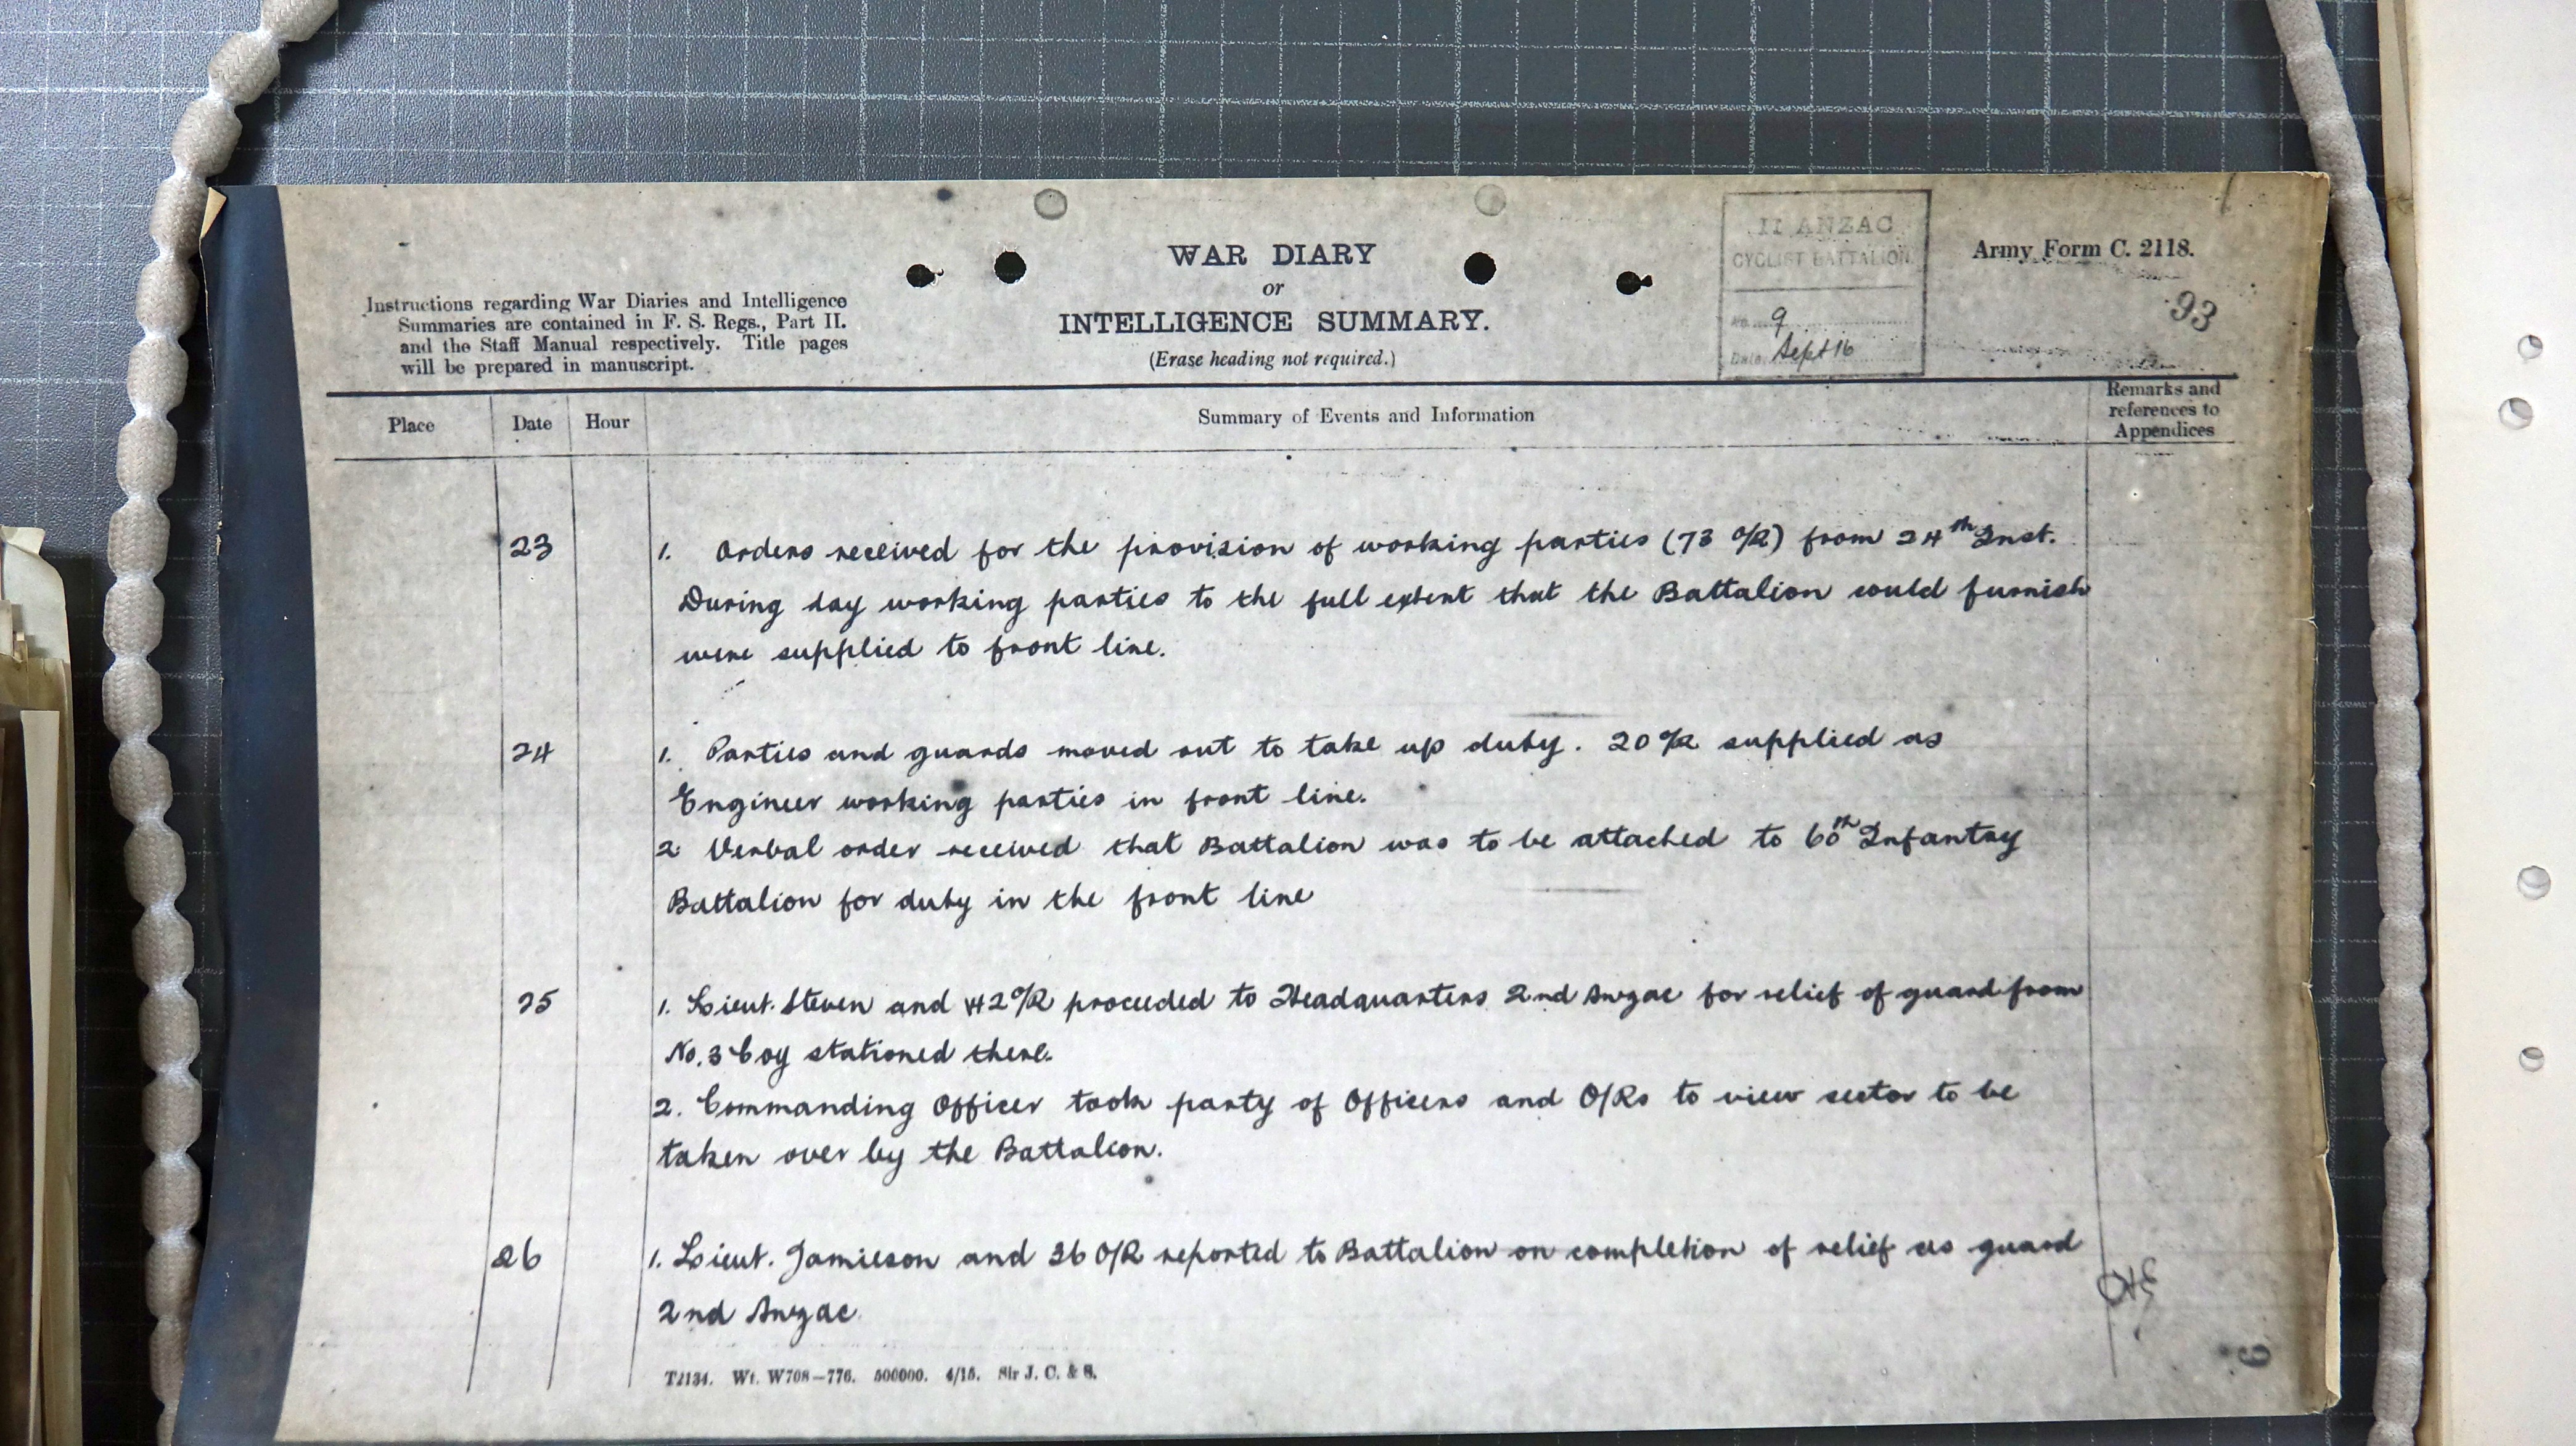 II ANZAC
CYCLIST BATTALION
No. 9
Date, Sept 16
Army Form C. 2118.
93
WAR DIARY
or
INTELLIGENCE SUMMARY.
(Erase heading not required.)
Instructions regarding War Diaries and Intelligence
Summaries are contained in F. S. Regs., Part II.
and the Staff Manual respectively. Title pages
will be prepared in manuscript.
Place Date Hour Summary of Events and Information Remarks and
references to
Appendices
23 1. Orders received for the provision of working parties (73 O/R) from 24th Inst.
During day working parties to the full extent that the Battalion could furnish
were supplied to front line.
24 1. Parties and guards moved out to take up duty. 20 O/R supplied as
Engineer working parties in front line.
2 Verbal order received that Battalion was to be attached to 60th Infantry
Battalion for duty in the front line
25 1. Lieut. Steven and 42 O/R proceeded to Headquarters 2nd Anzac for relief of guard from
No. 3 Coy stationed there.
2. Commanding Officer took party of Officers and O/Rs to view sector to be
taken over by the Battalion.
26 1. Lieut. Jamieson and 36 O/R reported to Battalion on completion of relief as guard
2nd Anzac.
T2134. Wt. W708—776. 500000. 4/15. Sir J. C. & S.